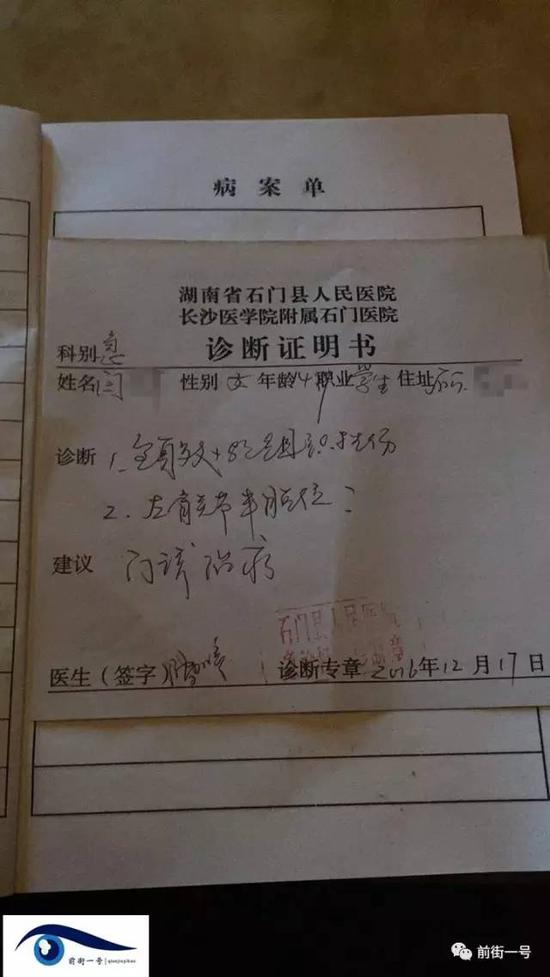 病案单
湖南省石门县人民医院
长沙医学院附属石门医院
科别 急 诊断证明书
姓名 闫 性别 女 年龄 14 职业 学生 住址
诊断 1. 全身多处软组织挫伤
2. 左肩关节半脱位?
建议 门诊治疗
石门县人民医院
医生(签字) 诊断专章 2016年12月17日
前街一号 qianjieyihao
前街一号